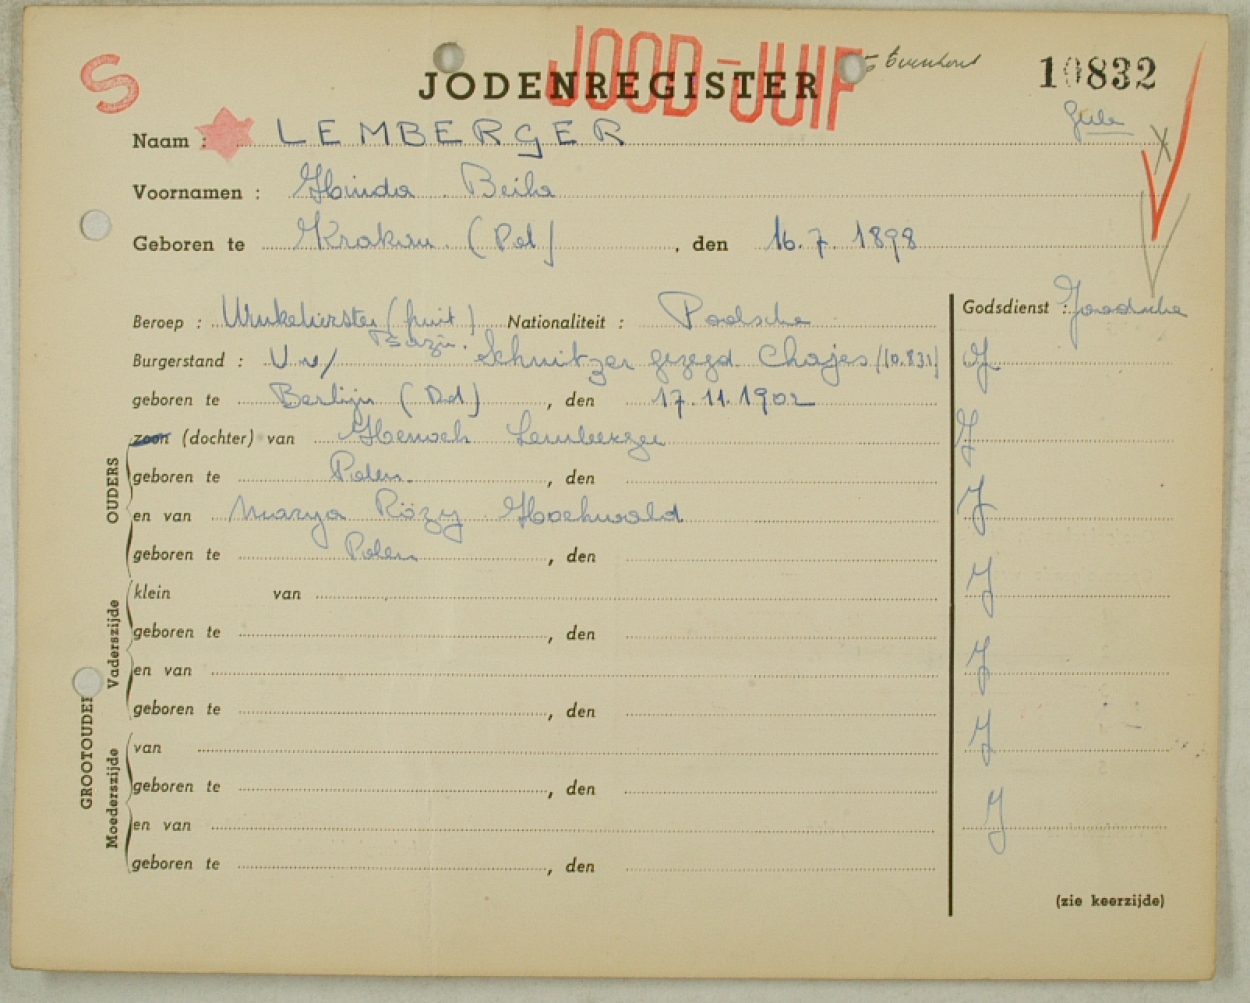 S JOOD-JUIF 10832
JODENREGISTER
Naam : LEMBERGER
Voornamen : Hinda Beila
Geboren te Krakau (Pol) , den 16.7.1898
Beroep : Winkelierster (fruit) Nationaliteit : Poolsche Godsdienst : Joodsche
Burgerstand : V. v/ Schnitzer gezegd Chajes (10.831) J
geboren te Berlijn (Dd) , den 17.11.1902
zoon (dochter) van Hersch Lemberger J
OUDERS
geboren te Polen. , den
en van Marya Rözy Hochwald J
geboren te Polen , den
klein van J
GROOTOUDER
Vaderszijde
geboren te , den
en van J
geboren te , den
van J
Moederszijde
geboren te , den
en van J
geboren te , den
(zie keerzijde)